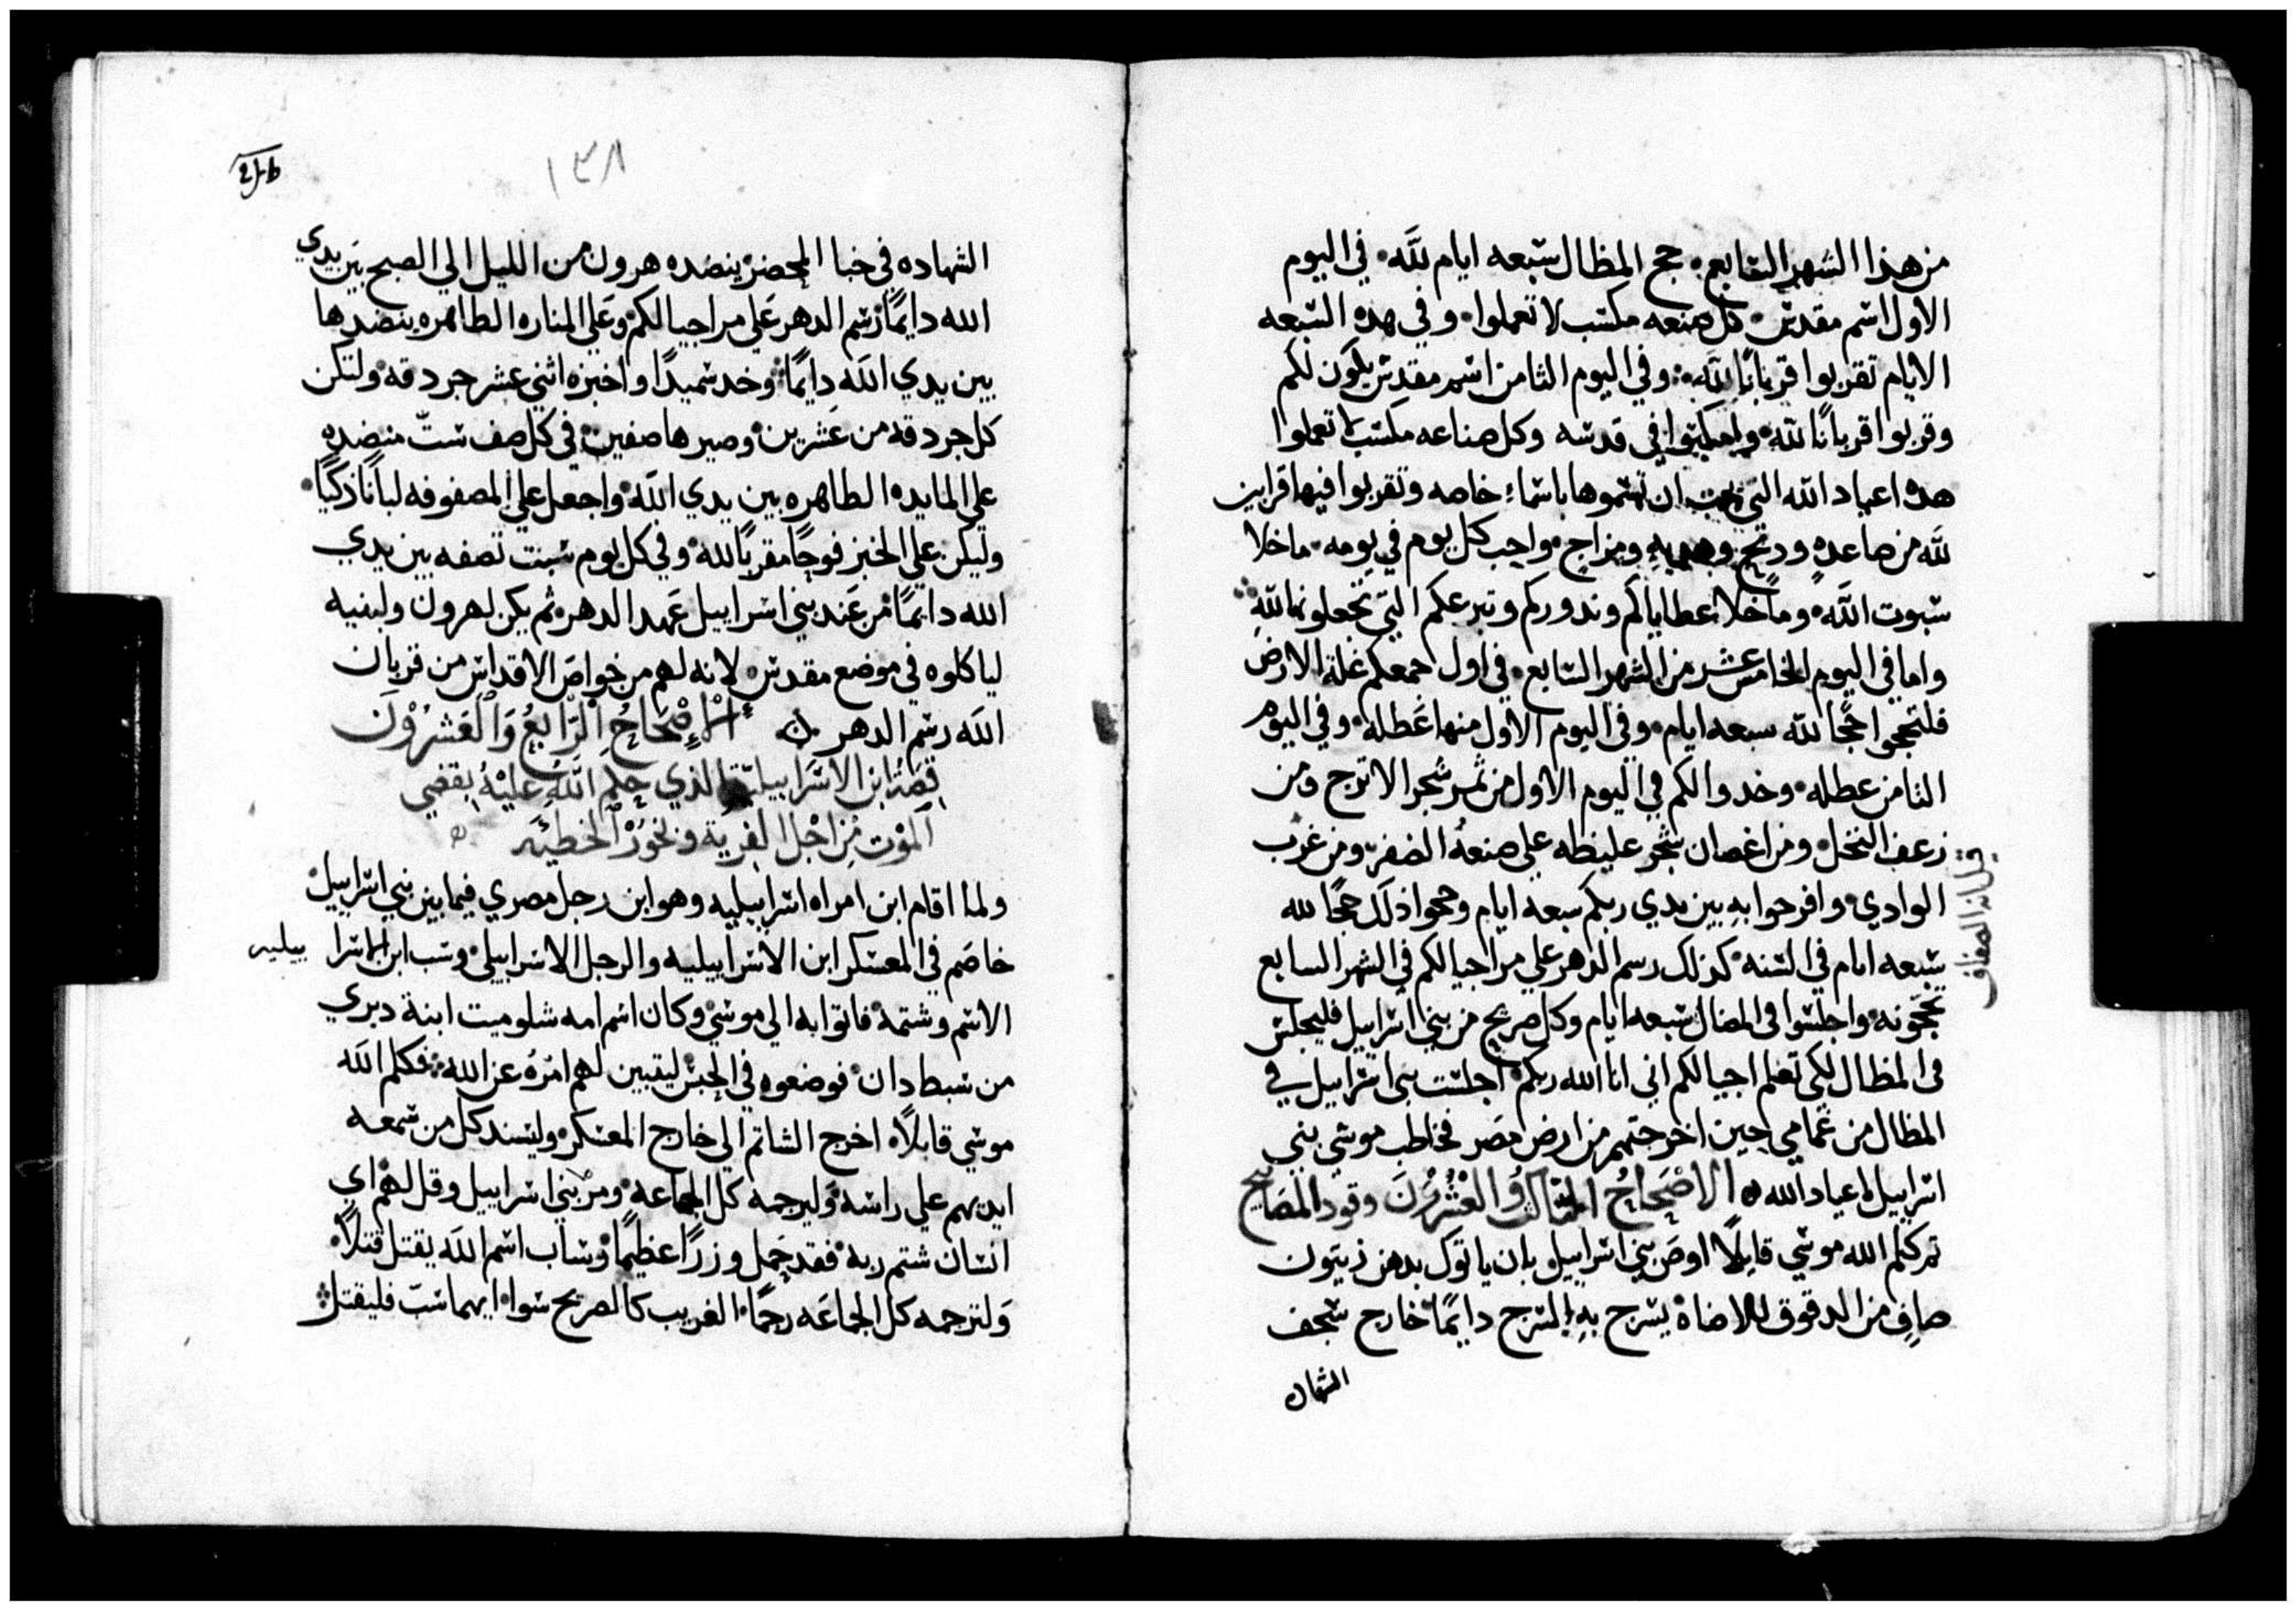 من هذا الشهر السابع۰ حج المظال سبعه ايام لله۰ في اليوم
الاول اسم مقدس۰ كل صنعه مكسب لا تعملوا۰ وفي هده السبعه
الايام تقربوا قربانًا لله۰ وفي اليوم الثامن اسم مقدس يكون لكم
وقربوا قربانًا لله۰ في قدسه وكل صناعه مكسب لا تعملوا
هده اعياد الله التي ان تسموها باسماء خاصه وتقربوا فيها قرابين
لله من صاعدهٍ ودبحٍ وهديهٍ ومزاجٍ۰ واجب كل يوم في يومه۰ ماخلا
سبوت الله۰ وماخلا عطاياكم وندوركم وتبرعكم التي تجعلونها لله
واما في اليوم الخامس عشر من الشهر السابع۰ في اول جمعكم غلة الارض
فلتحجوا حجًا لله سبعه ايام۰ وفي اليوم الاول منها عطله۰ وفي اليوم
الثامن عطله۰ وخدوا لكم في اليوم الاول من ثمر شجر الاترج ومن
زعف النخل۰ ومن اغصان شجر غليظه علي صنعة الضفر۰ ومن غرب
الوادي۰ وافرحوا بهِ بين يدي ربكم سبعه ايام وحجوا ذلك حجًا لله
سبعه ايام في السنه۰ كذلك رسم الدهر علي مر اجيالكم في الشهر السابع
تحجونه۰ واجلسوا في المضال سبعه ايام وكل صريح من بني اسراييل فليجلس
في المظال لكي تعلم اجيالكم اني انا الله ربكم۰ اجلست بني اسراييل في
المظال من غمامي حين اخرجتهم من ارض مصر فخاطب موسي بني
اسراييل باعياد الله ۰ الاصحاح الثالث والعشرون وقود المصابيح
ثم كلم الله موسي قايلًا اوصَ بني اسراييل بان ياتوك بدهن زيتون
صافٍ من الدقوق للاضاة يسرج بهِ السرج دايمًا خارج سجف
الشهاده
قيل انه الصفصاف
١٣٨
الشهاده في خبا المحضر ينضده هرون من الليل الي الصبح بين يدي
الله دايمًا رسم الدهر علي مر اجيالكم۰ وعلي المناره الطاهره ينضدها
بين يدي الله دايمًا۰ وخد سميدًا واخبزه اثني عشر جردقه۰ ولتكن
كل جردقه من عشرين۰ وصيرها صفين۰ في كل صف ستّ منضده
علي المايده الطاهره بين يدي الله۰ واجعل علي المصفوفه لبانًا ذكيًا۰
وليكن علي الخبز فوحًا مقربًا لله۰ وفي كل يوم سبت تصفه بين يدي
الله دايمًا۰ من عند بني اسراييل عهد الدهر۰ ثم يكن لهرون ولبنيه
لياكلوه في موضع مقدس۰ لانه لهم من خواص الاقداس من قربان
الله رسم الدهر ۰ الإِصْحَاحُ الرَّابِعُ وَالْعَشْرُوْنَ
قصة ابن الاسراييليّة الذي حكم الله عليهُ بقضي
الموت من اجل الفرية ونحو الخطيّه
ولما اقام ابن امراه اسراييليه وهو ابن رجل مصري فيما بين بني اسراييل
خاصم في المعسكر ابن الاسراييليه والرجل الاسراييلي۰ وسب ابن الاسرا ييليه
الاسم وشتمة۰ فاتوا به الي موسي۰ وكان اسم امه شلوميت ابنة دبري
من سبط دان۰ فوضعوه في الحبس ليتبين لهم امرهُ عن الله۰ فكلم الله
موسي قايلاً۰ اخرج الشاتم الي خارج المعسكر۰ وليسند كل من سمعه
ايديهم علي راسه۰ وَليرجمه كل الجماعه۰ ومر بني اسراييل وقل لهم۰ اي
انسان شتم ربه۰ فقد حمل وزرًا عظيمًا۰ وساب اسم الله يقتل قتلاً۰
وَلترجمه كل الجماعَه رجمًا۰ الغريب كالصريح سوا۰ ايهما سبّ فليقتل۰